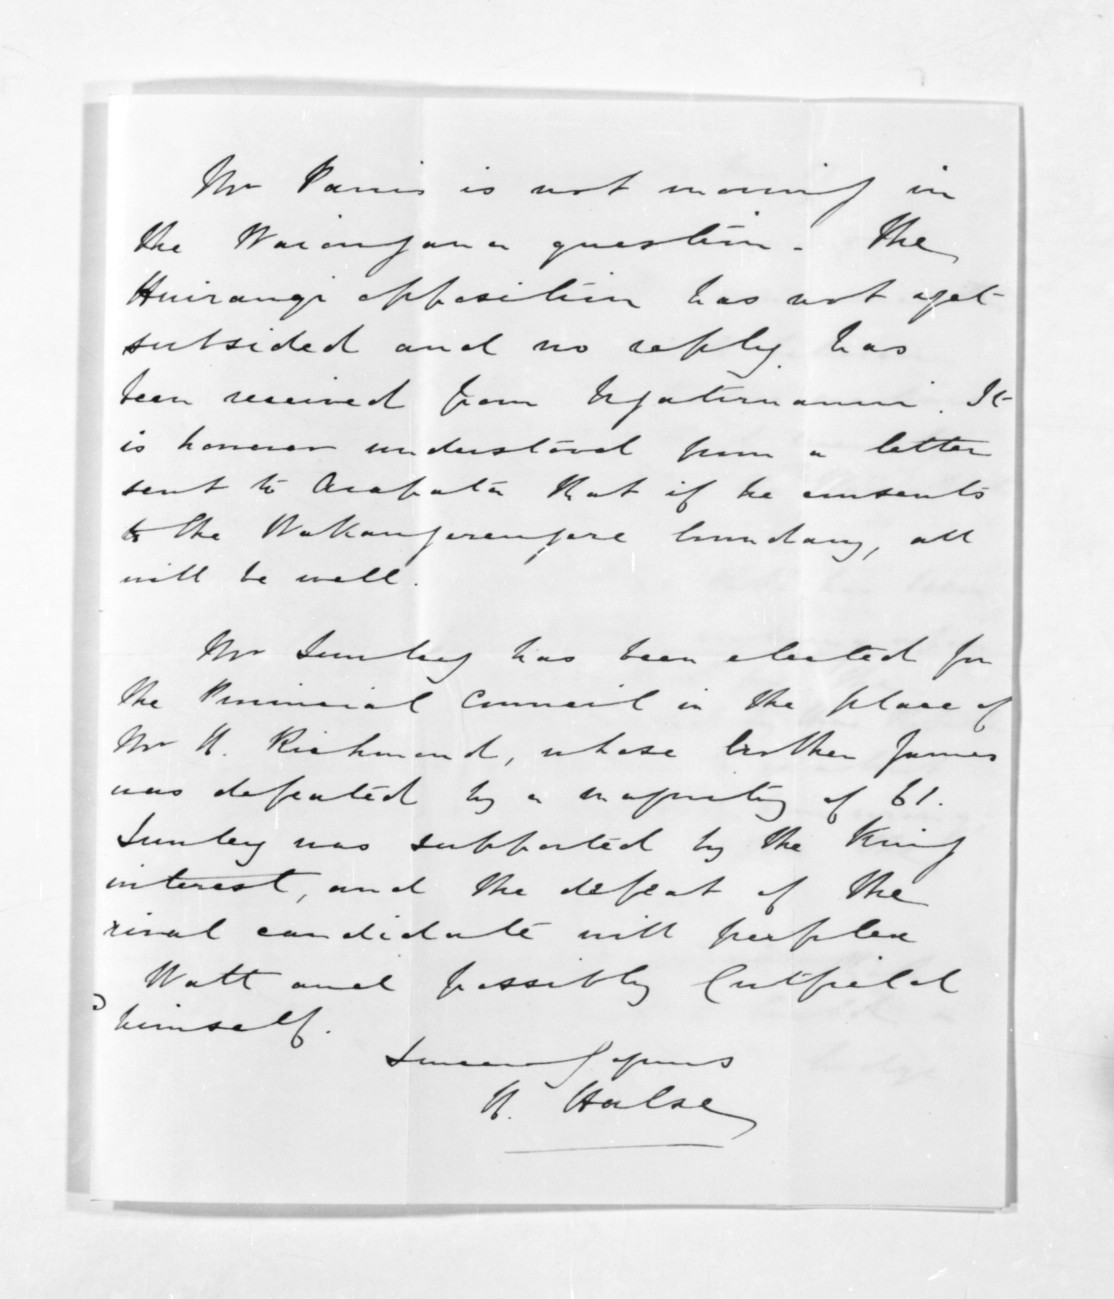 Mr Parris is not moving in
the Waiongona question. The
Huirangi opposition has not yet
subsided and no reply has
been received from Ngatimaniapoto. It
is however understood from a letter
sent to Arapata that if he consents
to the boundary, all
will be well.
Mr has been elected for
the Provincial Council in the place of
Mr H. Richmond, whose brother James
was defeated by a majority of 61.
was supported by the King
interest, and the defeat of the
rival candidate will perplex
Watt and possibly Cutfield
himself.
Sincerely yours
H. Halse